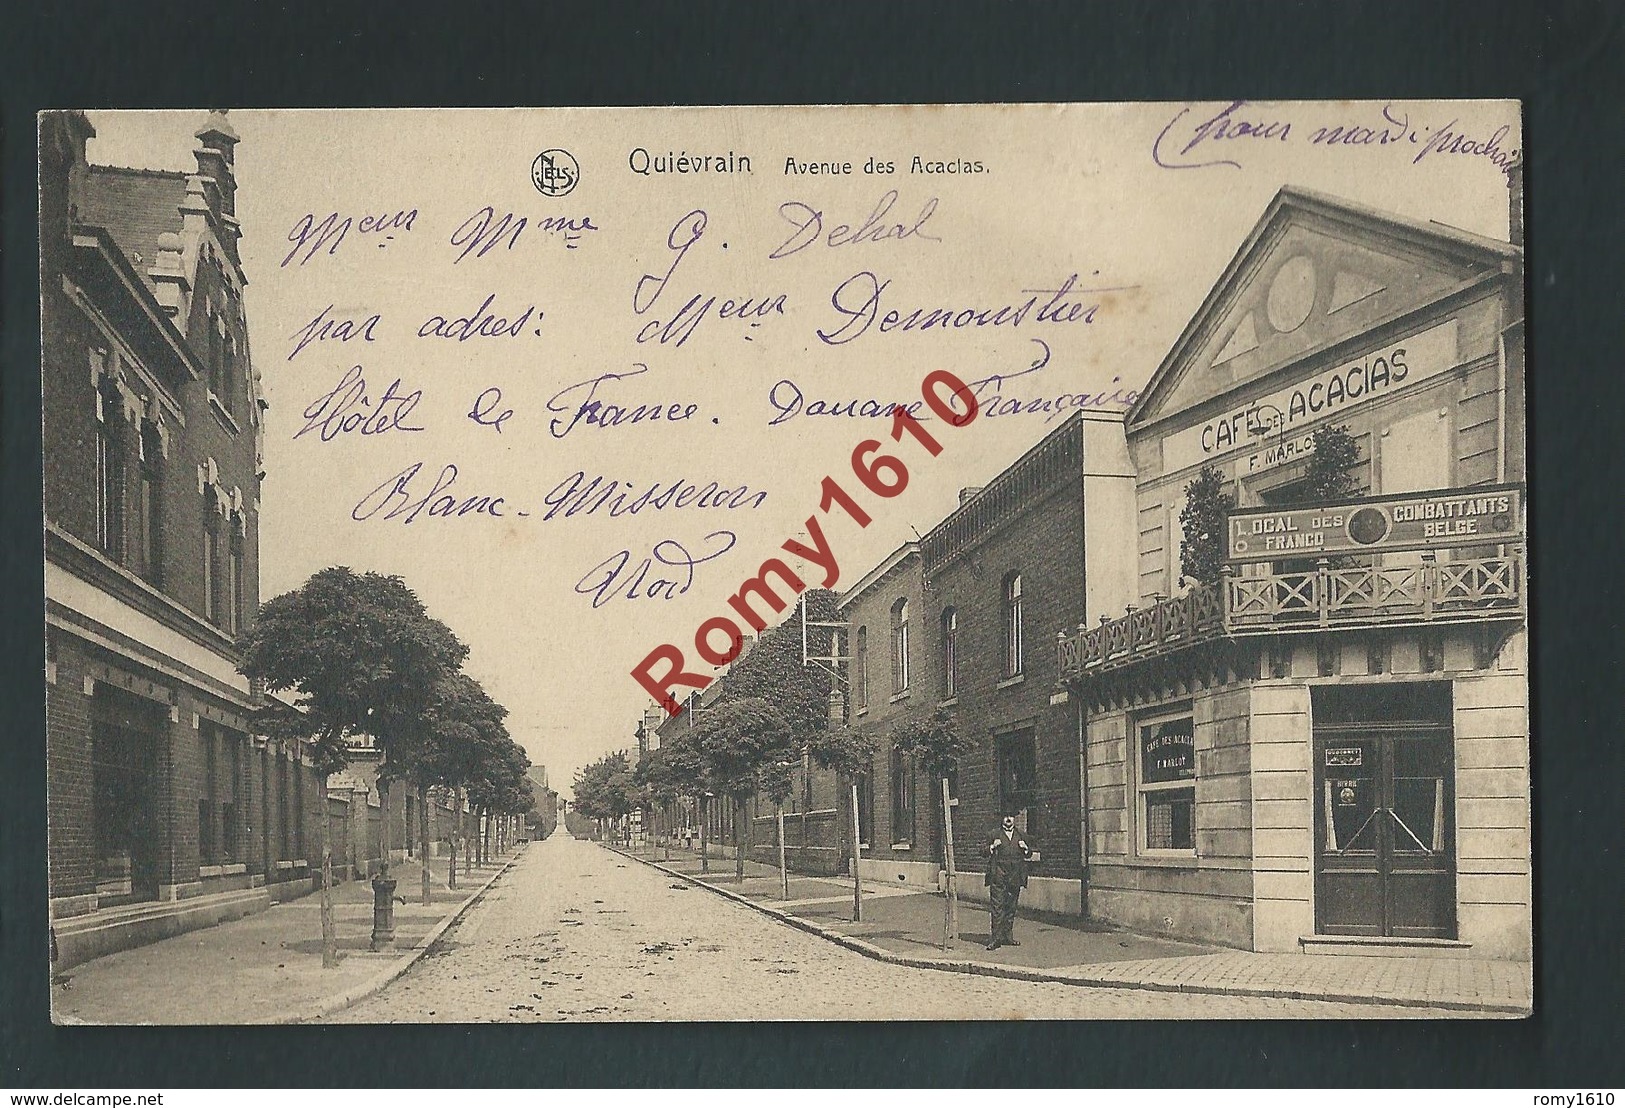 (pour mardi prochain
NELS
Quiévrain Avenue des Acacias.
Meur Mme G. Dehal
par adres: Meur Demoustier
Hôtel de France. Douane Française
Blanc-Misseron
Nord
Romy1610
CAFÉ DES ACACIAS
F. MARLOT
LOCAL DES COMBATTANTS
FRANCO BELGE
CAFÉ DES ACACIAS
F. MARLOT
delcampe.net
romy1610